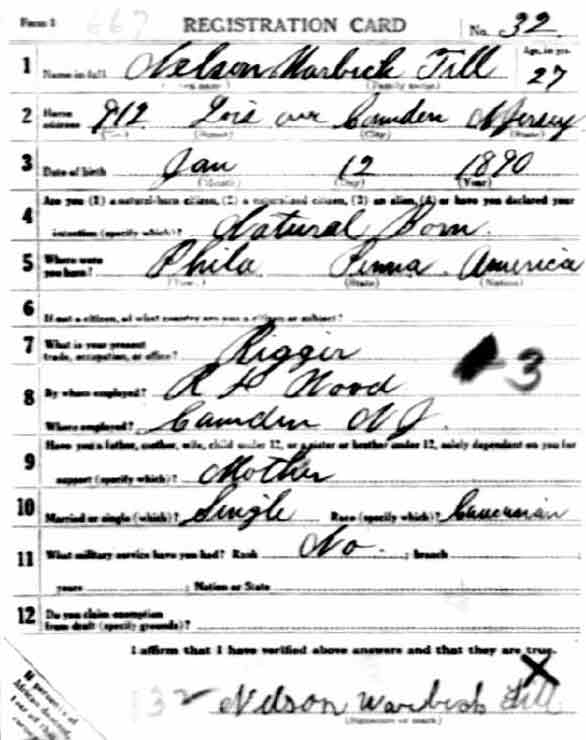 Form 1 667 REGISTRATION CARD No. 32
1 Name in full Nelson Warbick Till Age, in yrs. 27
(Given name) (Family name)
2 Home address 912 Lois ave Camden N Jersey
(No.) (Street) (City) (State)
3 Date of birth Jan 12 1890
(Month) (Day) (Year)
4 Are you (1) a natural-born citizen, (2) a naturalized citizen, (3) an alien, (4) or have you declared your
intention (specify which)? Natural Born.
5 Where were you born? Phila Penna. America
(Town) (State) (Nation)
6 If not a citizen, of what country are you a citizen or subject?
7 What is your present trade, occupation, or office? Rigger
3
8 By whom employed? R D Wood
Where employed? Camden N J.
9 Have you a father, mother, wife, child under 12, or a sister or brother under 12, solely dependent on you for
support (specify which)? Mother
10 Married or single (which)? Single Race (specify which)? Caucasian
11 What military service have you had? Rank No. ; branch
years ; Nation or State
12 Do you claim exemption from draft (specify grounds)?
I affirm that I have verified above answers and that they are true.
X
132 Nelson Warbick Till
(Signature or mark)
If person is of
African descent,